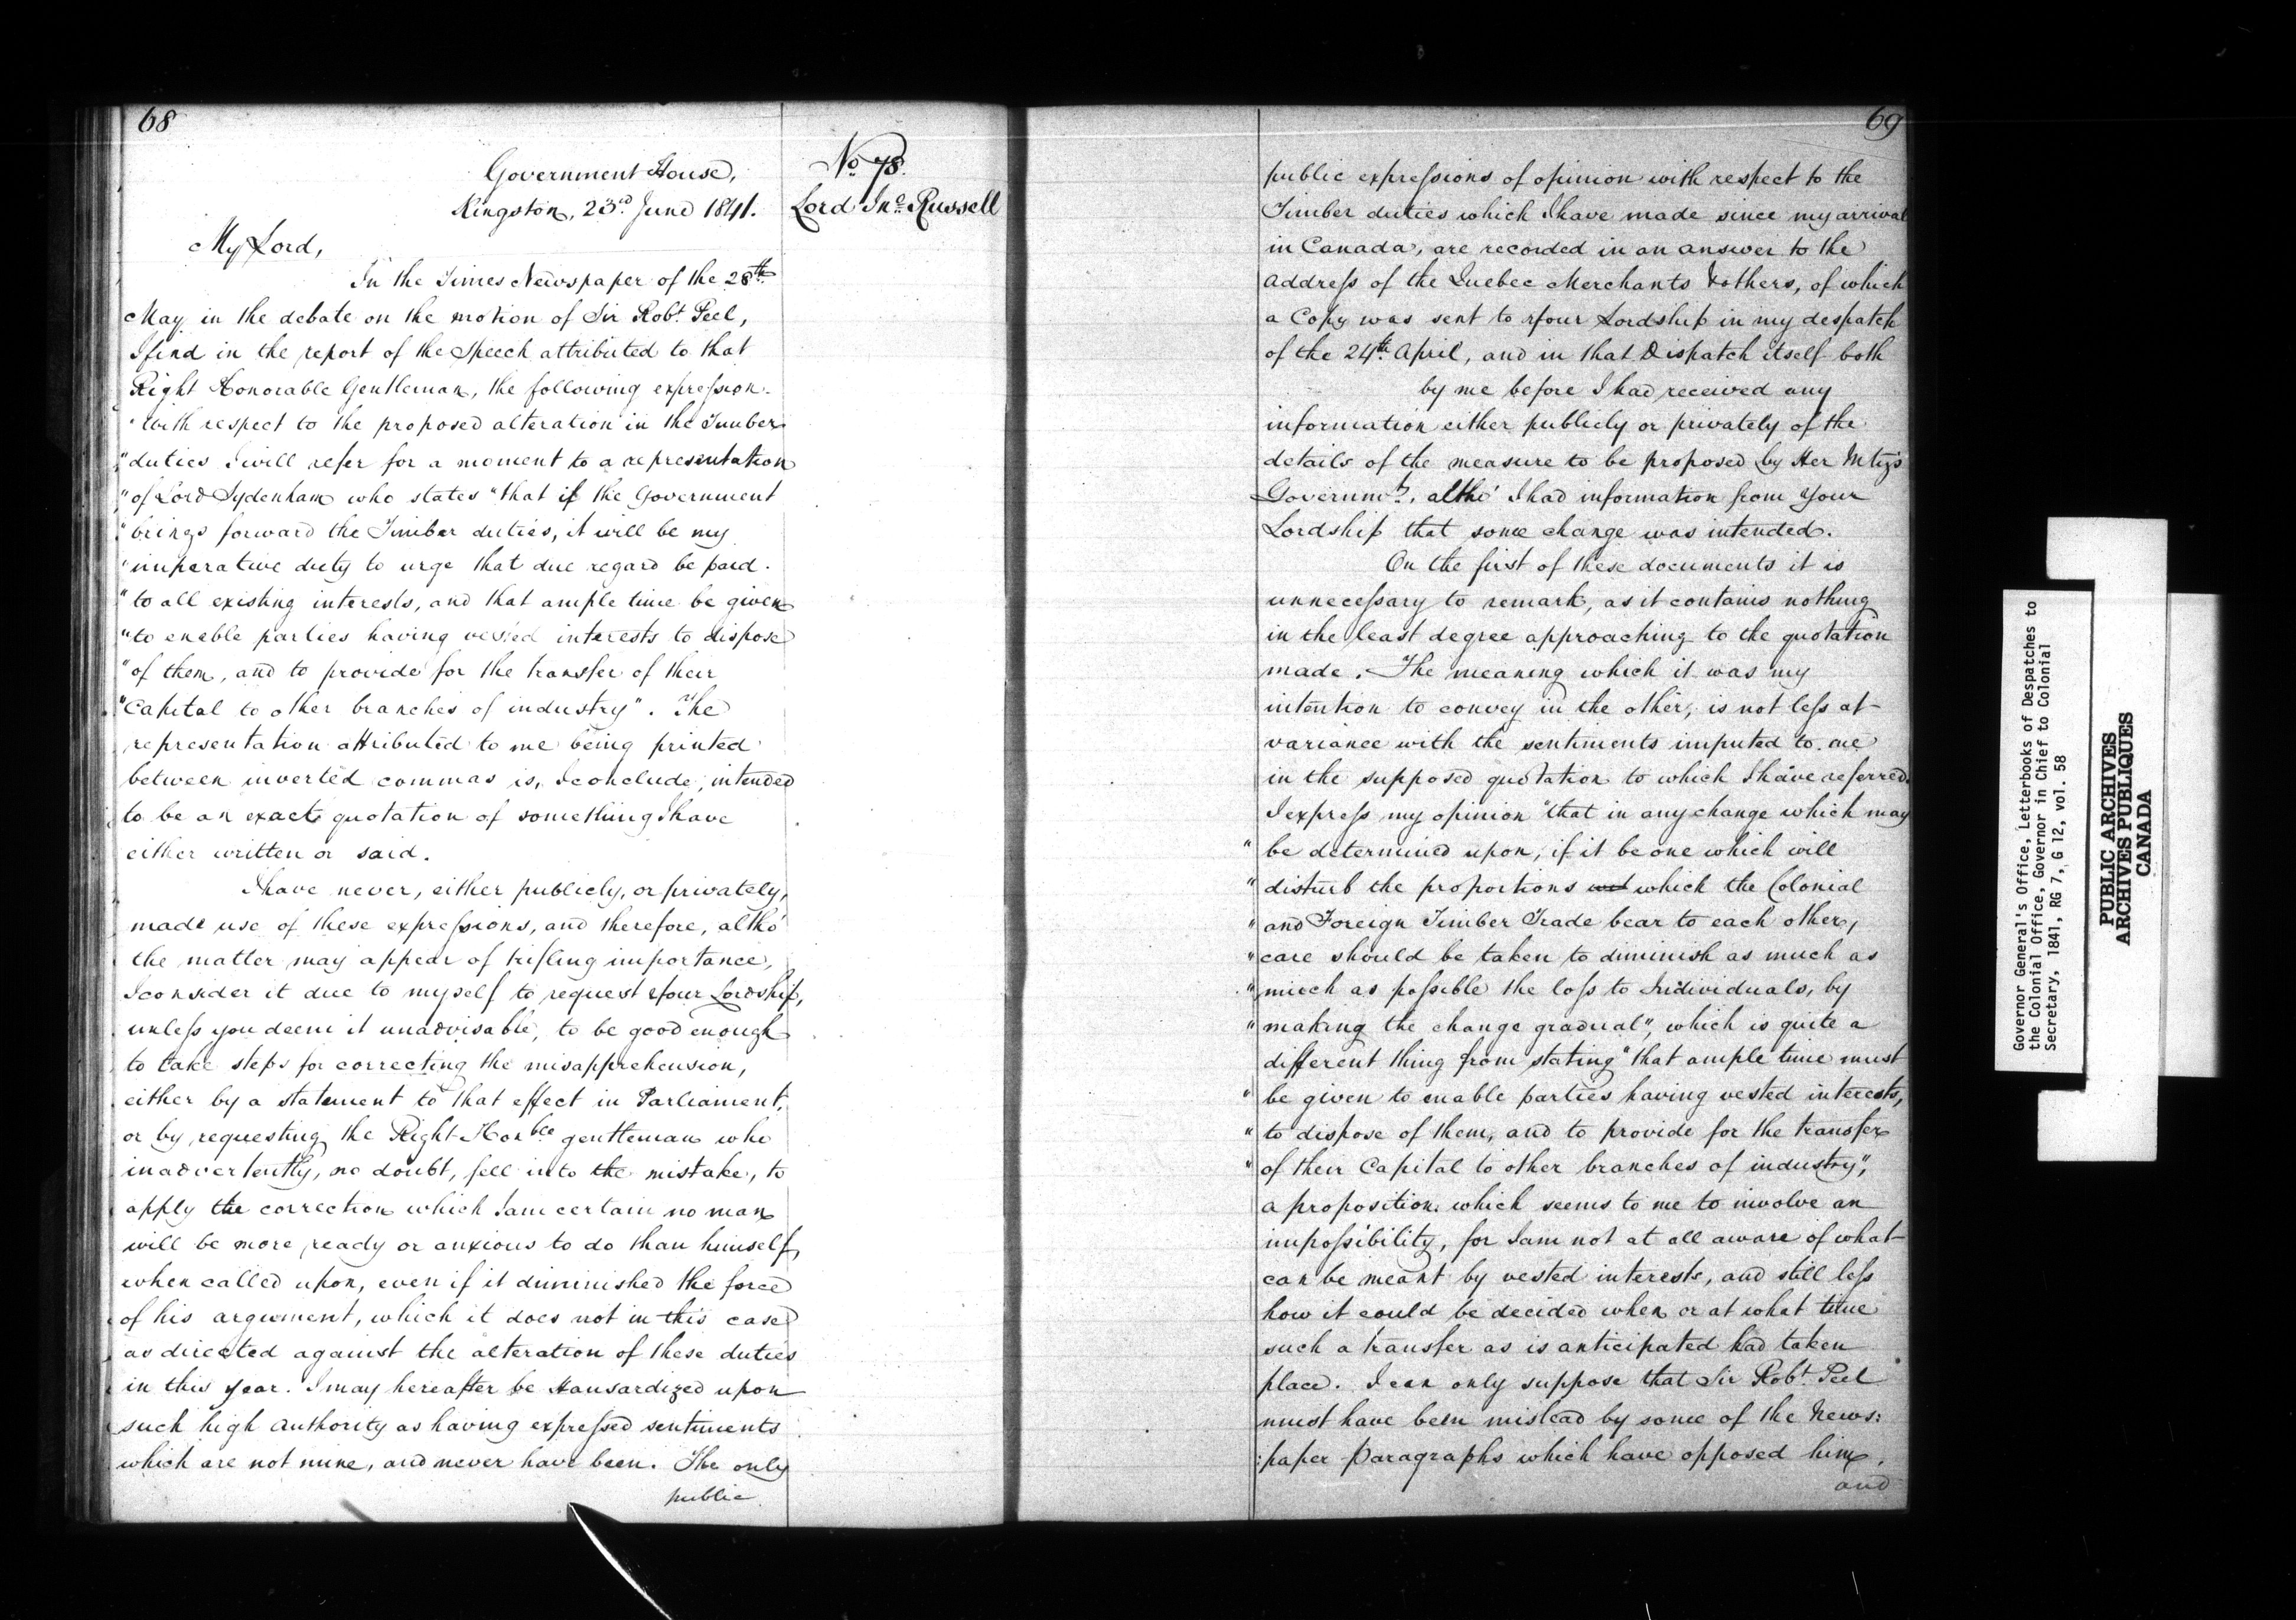 68
Government House,
Kingston, 23rd June 1841.
No 78.
Lord Jno. Russell
My Lord,
In the Times Newspaper of the 28th
May in the debate on the motion of Sir Robt Peel,
I find in the report of the Speech attributed to that
Right Honorable Gentleman, the following expression.
"With respect to the proposed alteration in the Timber
"duties I will refer for a moment to a representation
"of Lord Sydenham who states "that if the Government
"brings forward the Timber duties, it will be my
"imperative duty to urge that due regard be paid.
"to all existing interests, and that ample time be given
"to enable parties having vested interests to dispose
"of them, and to provide for the transfer of their
"Capital to other branches of industry". The
representation attributed to me being printed
between inverted commas is, I conclude, intended
to be an exact quotation of something I have
either written or said.
I have never, either publicly, or privately,
made use of these expressions, and therefore, altho'
the matter may appear of trifling importance,
I consider it due to myself to request Your Lordship,
unless you deem it unadvisable, to be good enough
to take steps for correcting the misapprehension,
either by a statement to that effect in Parliament,
or by requesting the Right Honble gentleman who
inadvertently, no doubt, fell into the mistake, to
apply the correction which I am certain no man
will be more ready or anxious to do than himself,
when called upon, even if it diminished the force
of his argument, which it does not in this case
as directed against the alteration of these duties
in this year. I may hereafter be Hansardized upon
such high authority as having expressed sentiments
which are not mine, and never have been. The only
public
69
public expressions of opinion with respect to the
Timber duties which I have made since my arrival
in Canada, are recorded in an answer to the
Address of the Quebec Merchants & others, of which
a Copy was sent to Your Lordship in my despatch
of the 24th April, and in that Dispatch itself both
by me before I had received any
information either publicly or privately of the
details of the measure to be proposed by Her Mty's
Governmt. altho' I had information from Your
Lordship that some change was intended.
On the first of these documents it is
unnecessary to remark, as it contains nothing
in the least degree approaching to the quotation
made. The meaning which it was my
intention to convey in the other, is not less at
variance with the sentiments imputed to me
in the supposed quotation to which I have referred.
I express my opinion "that in any change which may
"be determined upon, if it be one which will
"disturb the proportions which the Colonial
"and Foreign Timber Trade bear to each other,
"care should be taken to diminish as much as
"much as possible the loss to Individuals, by
"making the change gradual", which is quite a
different thing from stating "that ample time must
"be given to enable parties having vested interests,
"to dispose of them, and to provide for the transfer
"of their Capital to other branches of industry",
a proposition which seems to me to involve an
impossibility, for I am not at all aware of what
can be meant by vested interests, and still less
how it could be decided when or at what time
such a transfer as is anticipated had taken
place. I can only suppose that Sir Robt Peel
must have been mislead by some of the News:
:paper paragraphs which have opposed him,
and
Governor General's Office, Letterbooks of Despatches to
the Colonial Office, Governor in Chief to Colonial
Secretary, 1841, RG 7, G 12, vol. 58
PUBLIC ARCHIVES
ARCHIVES PUBLIQUES
CANADA